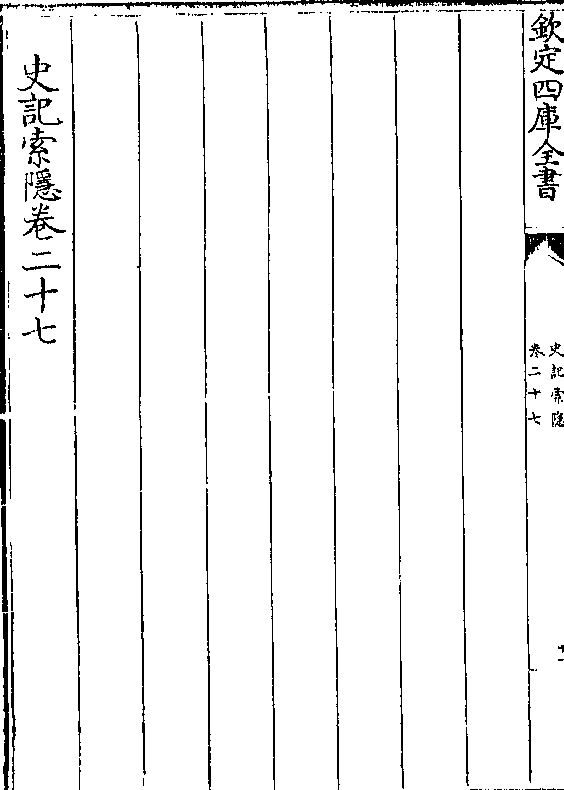 欽定四庫全書
史記索隱
卷二十七
史記索隱卷二十七